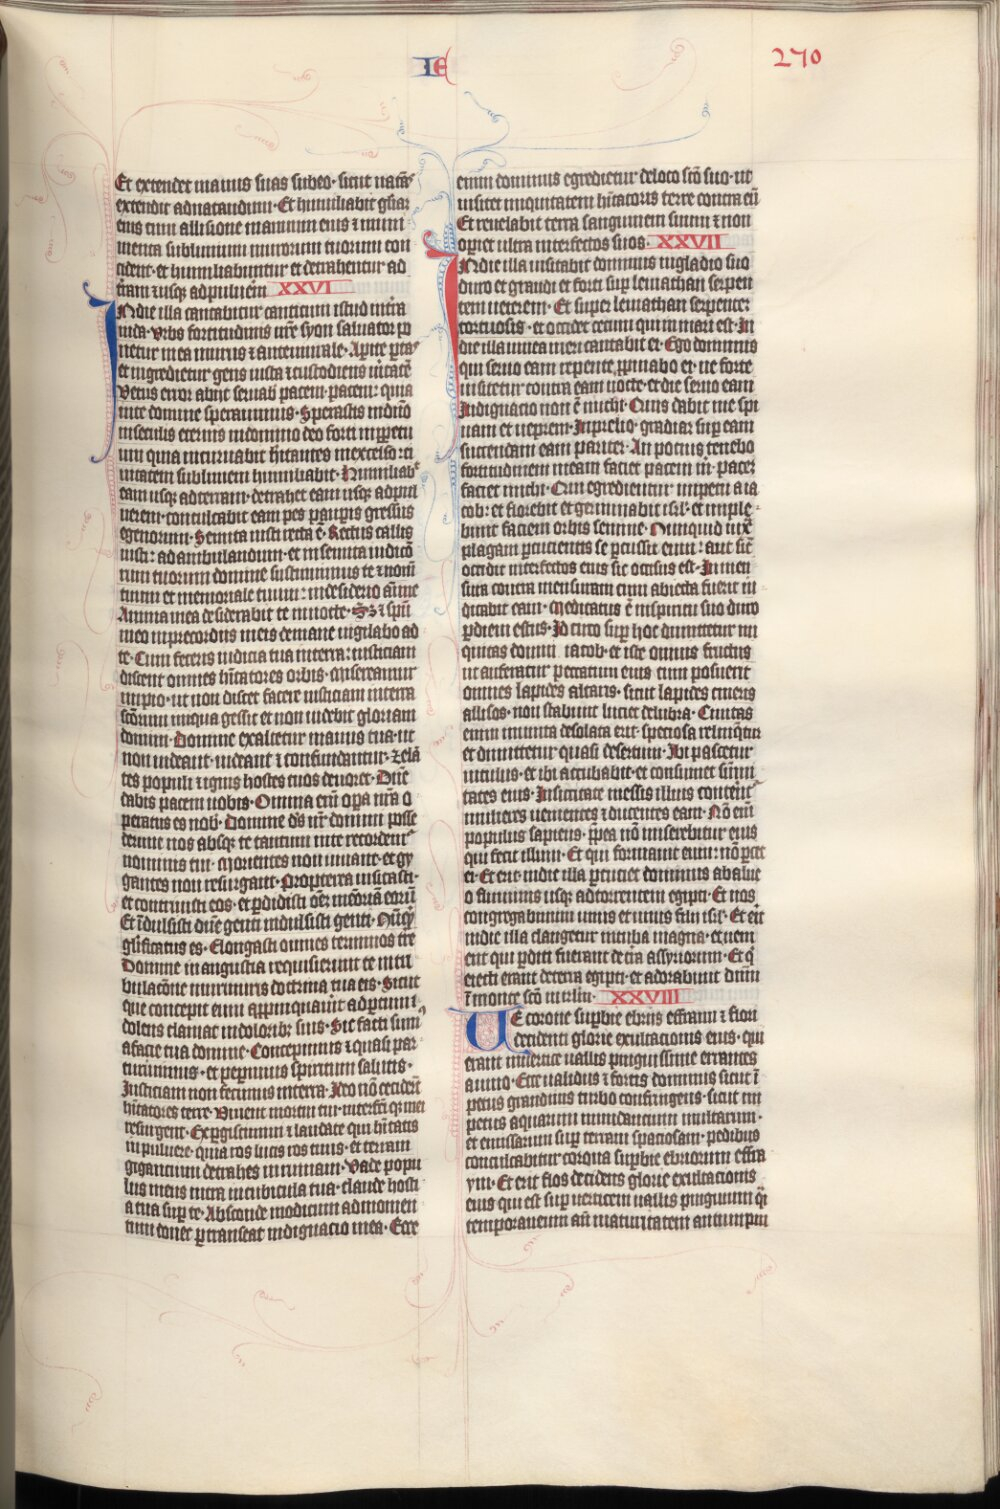 IE
270
Et extendet manus suas subeo· sicut natãs
extendit adnatandum· Et humiliabit glãm
eius cum allisione manuum eius ⁊ muni
menta sublimium murorum tuorum con
cident· et humiliabuntur et detrahentur ad
t̃ram ⁊usq̢ adpuluẽm XXVI
INdie illa cantabitur canticum istud in t̃ra
iuda· Vrbs fortitudinis nr̃e syon saluator po
netur in ea murus ⁊ antemurale· Apite portas
et ingredietur gens iusta ⁊custodiens uĩtatẽ
Vetus error abijt seruab̃ pacem· pacem: quia
in te domine sperauimus· Sperastis indño
inseculis eternis indomino deo forti inp̱petu
um quia incuruabit h̃itantes inexcelso: ci
uitatem sublimem humiliabit· Humiliab̃
eam usq̢ adterram· detrahet eam usq̢ adpul
uerem· conculcabit eam pes pauꝑis gressus
egenorum· Semita iusti recta ẽ· Rectus callis
iusti: ad ambulandum· et in semita iudicio
rum tuorum domine sustinuimus te ⁊ nom̃
tuum et memoriale tuum: indesiderio aĩme
Anima mea desiderabit te in nocte· Sꝫ ⁊ spũ
meo inprecordiis meis demane uigilabo ad
te· Cum feceris iudicia tua in terra: iusticiam
discent omnes h̃itatores orbis· Misereamur
impio· ut non discet facere iusticiam in terra
sc̃orum iniqua gessit et non uidebit gloriam
domini· Domine exaltetur manus tua· ut
non uideant· uideant ⁊ confundantur· zelã
tes populi ⁊ ignis hostes tuos deuoret· Dñe
dabis pacem nobis· Omnia eñi oꝑa nr̃a o
peratus es nob̃· Domine ds̃ nr̃ domini posse
derunt nos absq̢ te tantum in te recordem̃
nominis tui· Morientes non uiuant· et gy
gantes non resurgant· Propterea uisitasti·
et contriuisti eos· et ꝑdidisti om̃e memoriã eorũ
Et ĩdulsisti dñe genti indulsisti genti· Nũq̃
gl̃ificatus es· Elongasti omnes terminos t̃re
Domine in angustia requisierunt te in tri
bulacõne murmuris doctrina tua eis· Sicut
que concepit cum apꝑinquau̾it adpartum
dolens clamat indoloribꝫ suis· Sic facti sum
afacie tua domine· Concepimus ⁊ quasi par
turiuimus· et peperimus spiritum salutis·
Iusticiam non fecimus in terra· Ideo nõ cecider̃t
h̃itatores terre· Viuent mortui tui· interfc̃i mei
resurgent· Exꝑgiscimini ⁊ laudate qui h̃itatis
in puluere· quia ros lucis ros tuus· et terram
gigantium detrahes in ruinam· Vade popu
lus meus intra in cubicula tua· claude hosti
a tua suꝑ te· Absconde modicum admomen
tum donec ꝑtranseat indignacio mea· Ecce
enim dominus egredietur deloco sc̃o suo· ut
uisitet iniquitatem h̃itatoris terre contra eũ
Et reuelabit terra sanguinem suum ⁊ non
oꝑiet ultra interfectos suos· XXVII
INdie illa uisitabit dominus in gladio suo
duro et grandi et forti suꝑ leuiathan serpen
tem uectem· Et super leuiathan serpentem
tortuosum· et occidet cetum qui in mari est· In
die illa uinea meri cantabit ei· Ego dominus
qui seruo eam repente ꝓpinabo ei· ne forte
uisitetur contra eam nocte· et die seruo eam
Indignacio non ẽ michi· Quis dabit me spi
nam et ueprem· In prelio· gradiar suꝑ eam
succendam eam pariter· An pocius tenebo
fortitudinem meam faciet pacem m̃· pacem
faciet michi· Qui egredientur impetu a ia
cob: et florebit et germinabit isrl̃· et imple
bunt faciem orbis semine· Nunquid iux̃
plagam ꝑcucientis se ꝑcussit eum: aut sic̃
occidit interfectos eius sic occisus est· In men
sura contra mensuram cum abiecta fuerit iu
dicabit eam· Meditatus ẽ in spiritu suo duro
ꝑ diem estus· Idcirco suꝑ hoc dimittetur ini
quitas domui iacob· et iste omnis fructus
ut auferatur peccatum eius cum posuerit
omnes lapides altaris· sicut lapides cineris
allisos· non stabunt luci et delubra· Ciuitas
enim munita desolata erit· speciosa relinq̃tur
et dimittetur quasi desertum· Ibi pascetur
uitulus· et ibi accubabit· et consumet sum̃i
tates eius· In siccitate messis illius conterent̃
mulieres uenientes ⁊ docentes eam· Nõ eni
populus sapiens· ꝓpterea nõ miserebitur eius
qui fecit illum· Et qui formauit eum: nõ parcet
ei· Et erit· indie illa ꝑcuciet dominus ab alue
o fluminis usq̢ ad torrentem egipti· Et uos
congregabimini unus et unus filii isrl̃· Et erit
in die illa clangetur in tuba magna· et ueni
ent qui ꝑditi fuerant de t̃ra assyriorum· Et q̃
eiecti erant de terra egipti· et adorabunt dñm
ĩ monte sc̃o in irl̃m· XXVIII
UE corone suꝑbie ebriis effraim ⁊ flori
decidenti glorie exultacionis eius· qui
erant in uertice uallis pinguissime errantes
a uino· Ecce ualidus ⁊ fortis dominus sicut ĩ
petus grandinis turbo confringens· sicut im
petus aquarum inundancium multarum·
et emissarum suꝑ terram spaciosam· pedibus
conculcabitur corona suꝑbie ebriorum effra
ym· Et erit flos decidens glorie exultacionis
eius qui est suꝑ uerticem uallis pinguium q̃i
temporaneum añ maturitatem autumpni